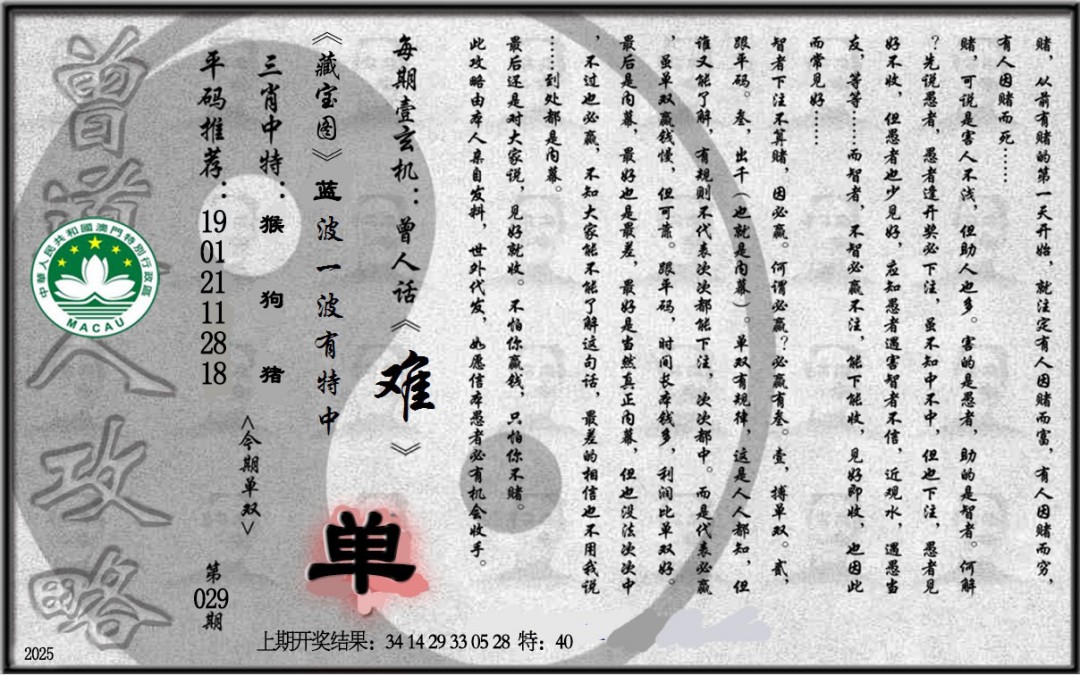 赌，从前有赌的第一天开始，就注定有人因赌而富，有人因赌而穷，
有人因赌而死……
赌，可说是害人不浅，但助人也多。害的是愚者，助的是智者。何解
？先说愚者，愚者逢开奖必下注，虽不知中不中，但也下注，愚者见
好不收，但愚者也少见好，应知愚者遇害智者不信，近观水，遇愚当
友，等等……而智者，不智必赢不注，能下能收，见好即收，也因此
而常见好……
智者下注不算赌，因必赢。何谓必赢？必赢有叁。壹，搏单双。贰，
跟平码。叁，出千（也就是内幕）。单双有规律，这是人人都知，但
谁又能了解，有规则不代表次次都能下注，次次都中。而是代表必赢
，虽单双赢钱慢，但可靠。跟平码，时间长本钱多，利润比单双好。
最后是内幕，最好也是最差，最好是当然真正内幕，但也没法次次中
，不过也必赢，不知大家能不能了解这句话，最差的相信也不用我说
……到处都是内幕。
最后还是对大家说，见好就收。不怕你赢钱，只怕你不赌。
此攻略由本人亲自发料，世外代发，如愿信本愚者必有机会收手。
每期壹玄机：曾人话《难》
《藏宝图》蓝波一波有特中
三肖中特：猴 狗 猪
平码推荐：19 01 21 11 28 18
<今期单双>
单
第029期
曾道人攻略
中華人民共和國澳門特別行政區
MACAU
上期开奖结果：34 14 29 33 05 28 特：40
2025